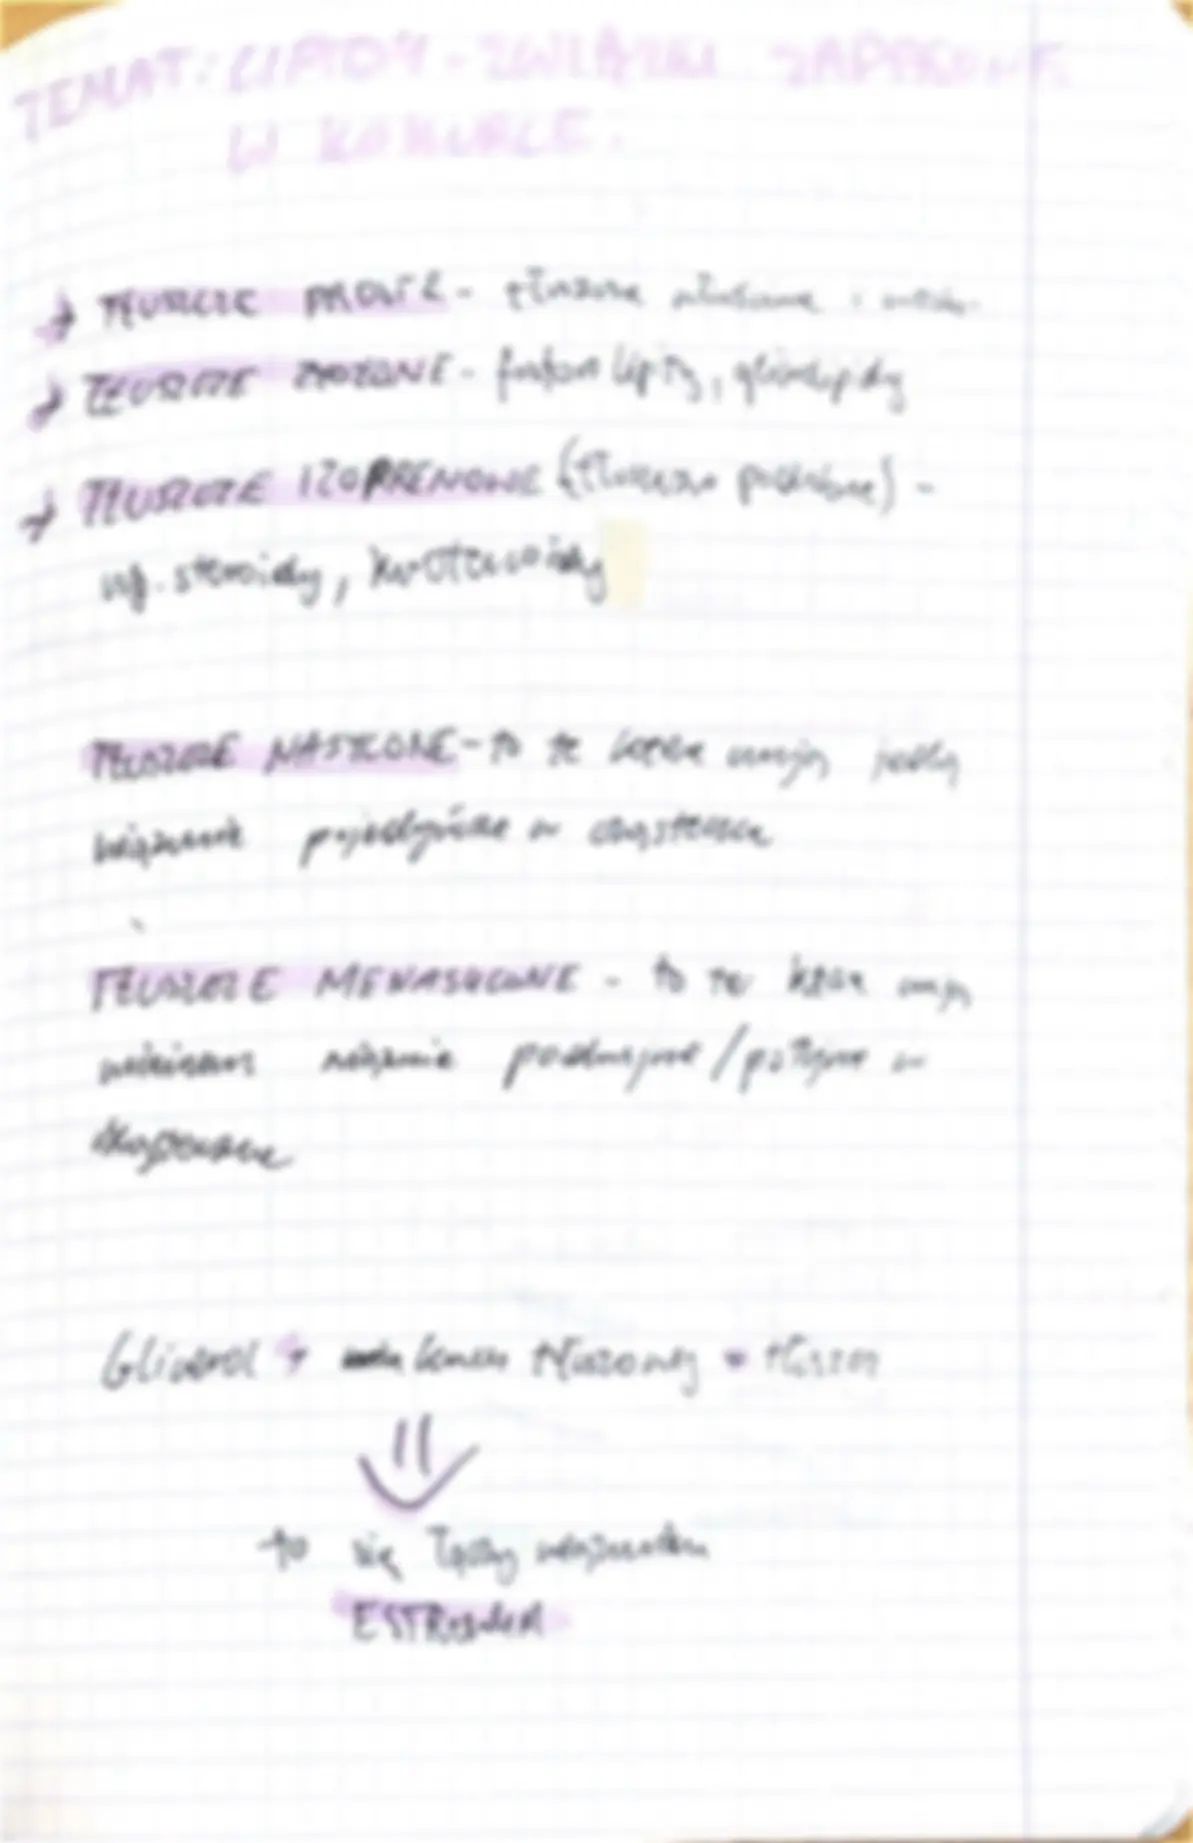 TEMAT: LIPIDY - ZWIĄZKI ZAPASOWE
W KOMÓRCE.
→ TŁUSZCZE PROSTE - tłuszcze właściwe i woski
→ TŁUSZCZE ZŁOŻONE - fosfolipidy, glikolipidy
→ TŁUSZCZE IZOPRENOWE (tłuszczo podobne) -
np. steroidy, karotenoidy
TŁUSZCZE NASYCONE - to te które mają
wiązanie pojedyńcze w cząsteczce
TŁUSZCZE NIENASYCONE - to te które mają
wiązanie podwójne/potrójne w
cząsteczce
Glicerol + tłuszczowy = tłuszcz
to się łączy wiązaniem